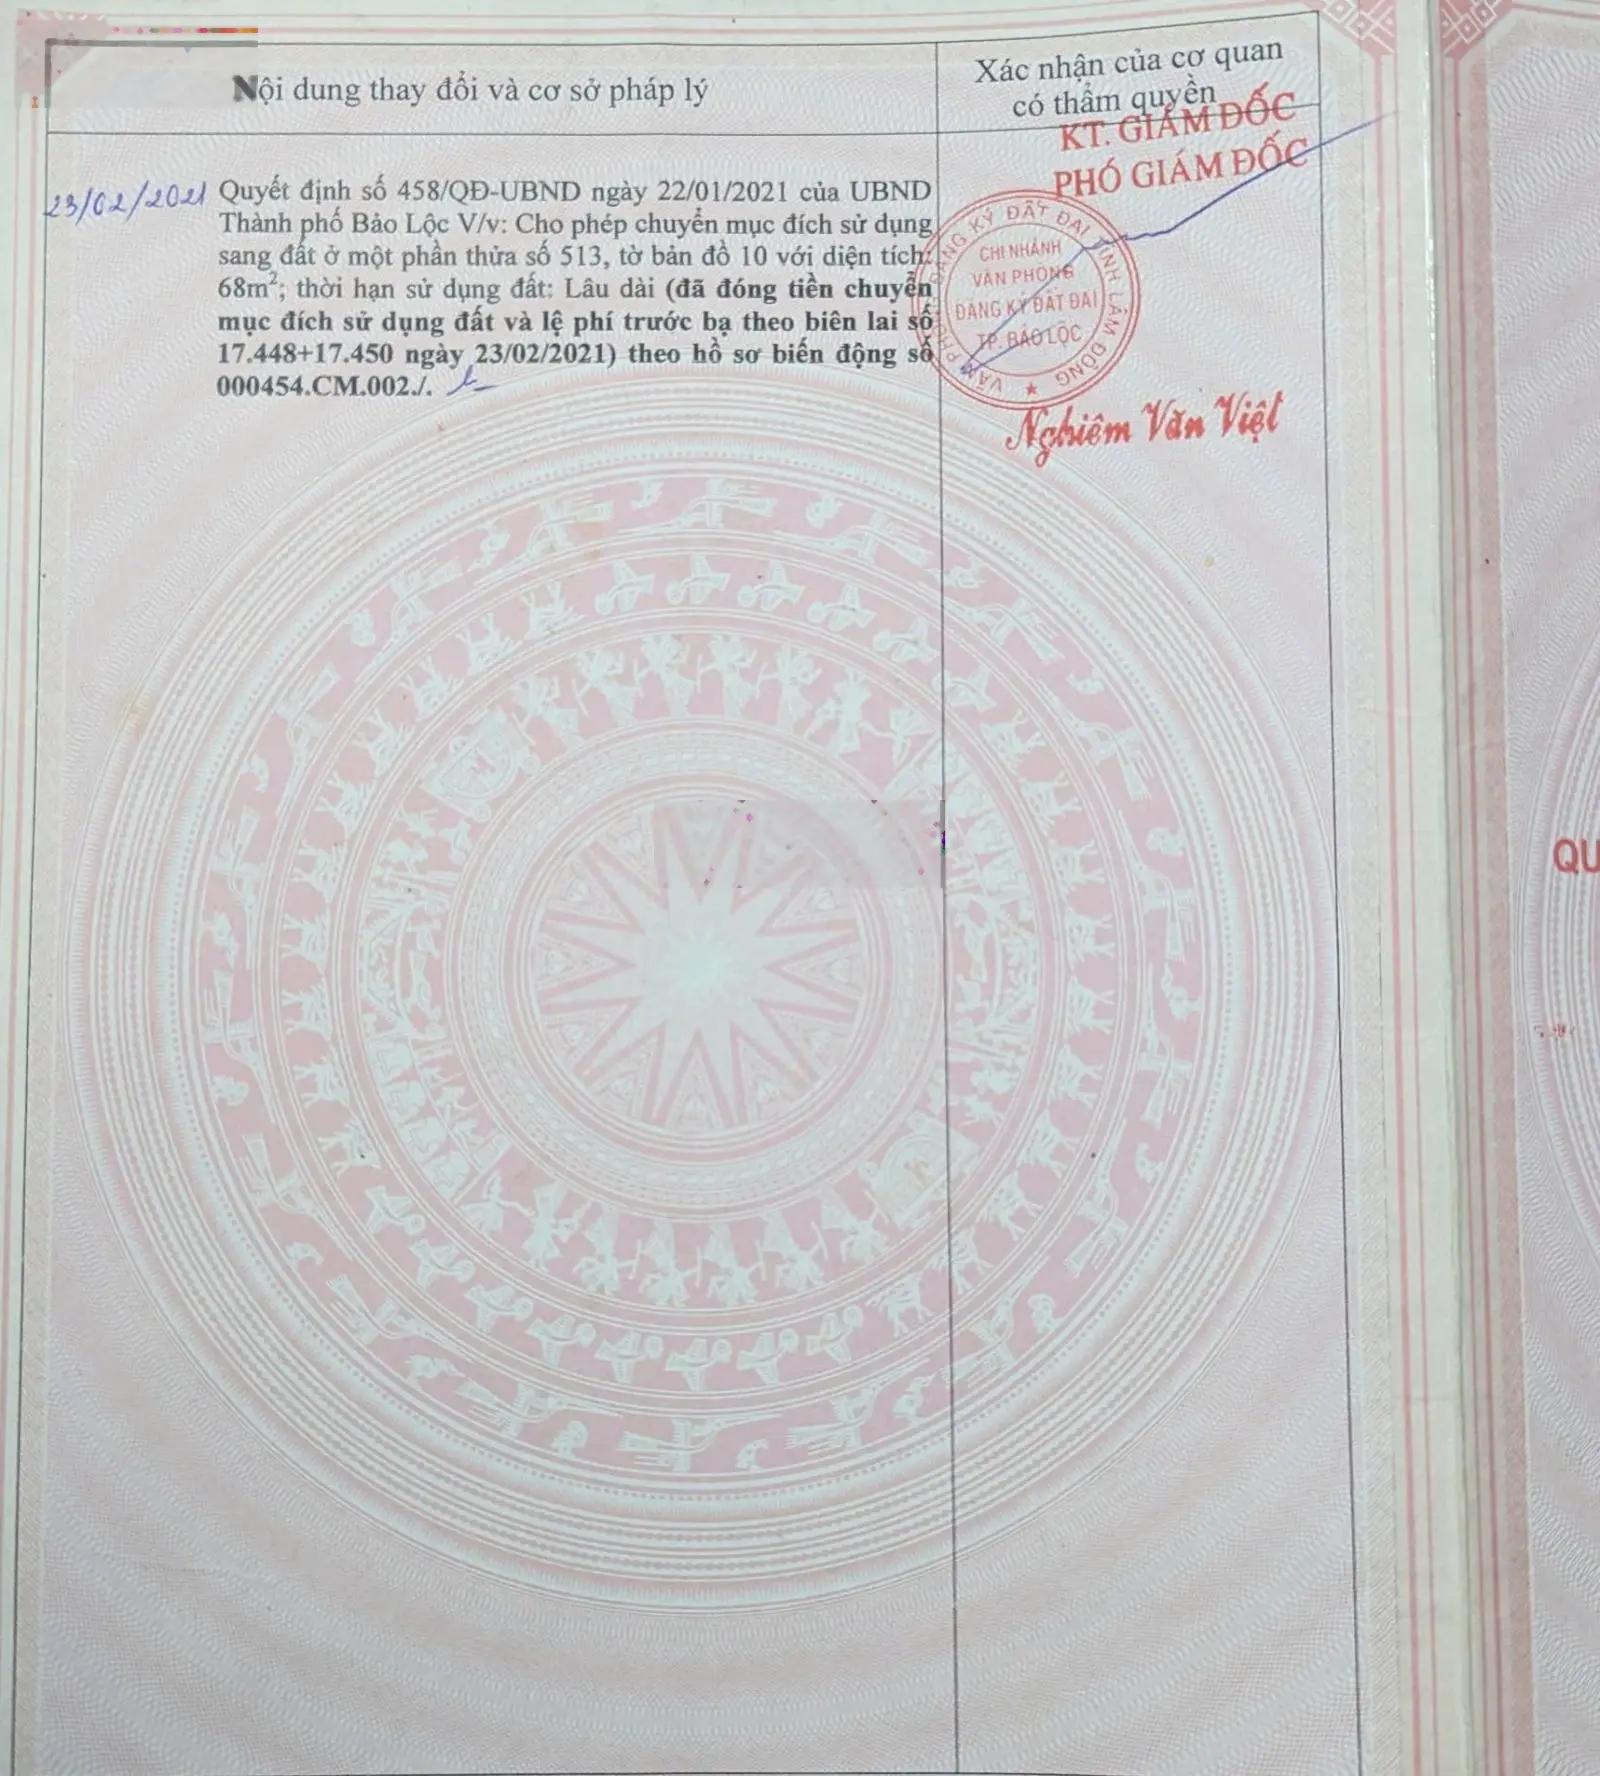 Nội dung thay đổi và cơ sở pháp lý
Xác nhận của cơ quan
có thẩm quyền
KT. GIÁM ĐỐC
PHÓ GIÁM ĐỐC
23/02/2021
Quyết định số 458/QĐ-UBND ngày 22/01/2021 của UBND
Thành phố Bảo Lộc V/v: Cho phép chuyển mục đích sử dụng
sang đất ở một phần thửa số 513, tờ bản đồ 10 với diện tích:
68m²; thời hạn sử dụng đất: Lâu dài (đã đóng tiền chuyển
mục đích sử dụng đất và lệ phí trước bạ theo biên lai số
17.448+17.450 ngày 23/02/2021) theo hồ sơ biến động số
000454.CM.002./.
VĂN PHÒNG ĐĂNG KÝ ĐẤT ĐAI TỈNH LÂM ĐỒNG
CHI NHÁNH
VĂN PHÒNG
ĐĂNG KÝ ĐẤT ĐAI
TP. BẢO LỘC
Nghiêm Văn Việt
QU